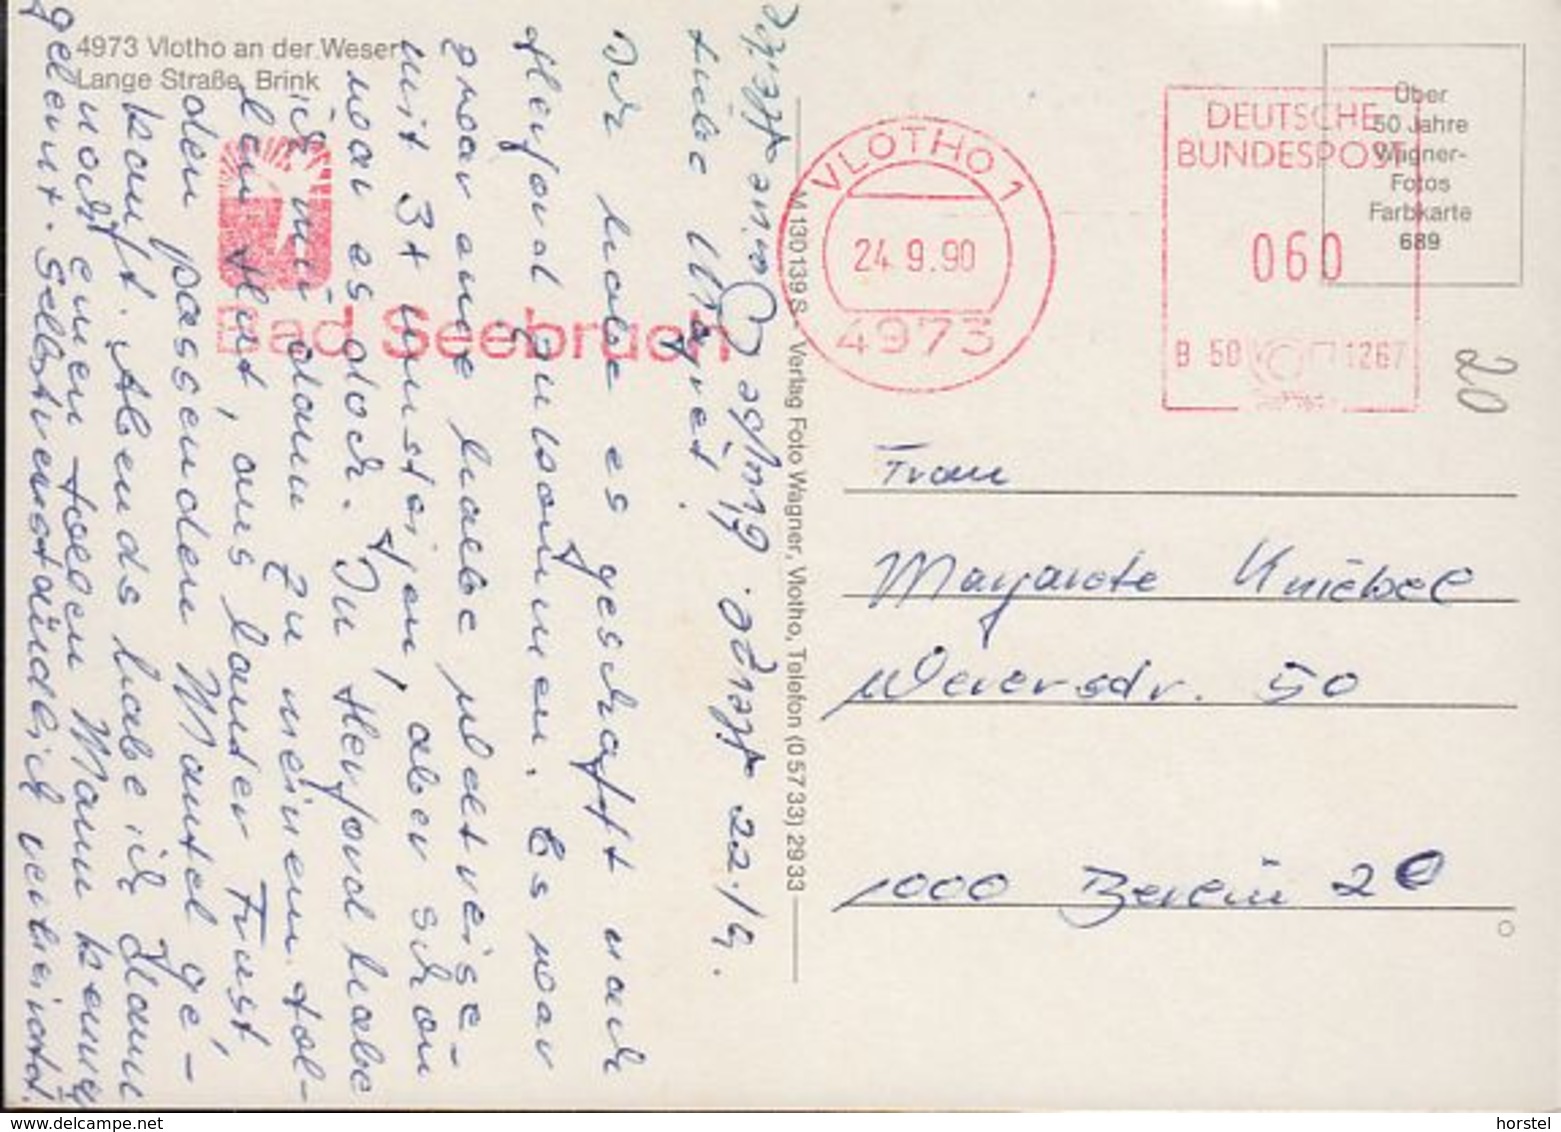 4973 Vlotho an der Weser
Lange Straße, Brink
Bad Seebruch
VLOTHO 1
24.9.90
4973
DEUTSCHE
BUNDESPOST
060
B 50 1267
Über
50 Jahre
Wagner-
Fotos
Farbkarte
689
20
M 130139 S - Verlag Foto Wagner, Vlotho, Telefon (05733) 2933
22.9.
Liebe
Ich habe es geschafft nach
Herford zu kommen. Es war
zwar eine halbe Weltreise
mit 3x umsteigen, aber schon
war es doch. In Herford habe
ich mir dann zu meinem tol-
len Hut, aus lauter Frust,
den passenden Mantel ge-
kauft. Abends habe ich dann
noch einen tollen Mann kennen
gelernt. Selbstverständlich verheiratet.
Frau
Margarete Kniebel
Weverstr. 50
1000 Berlin 20
delcampe.net
horstel